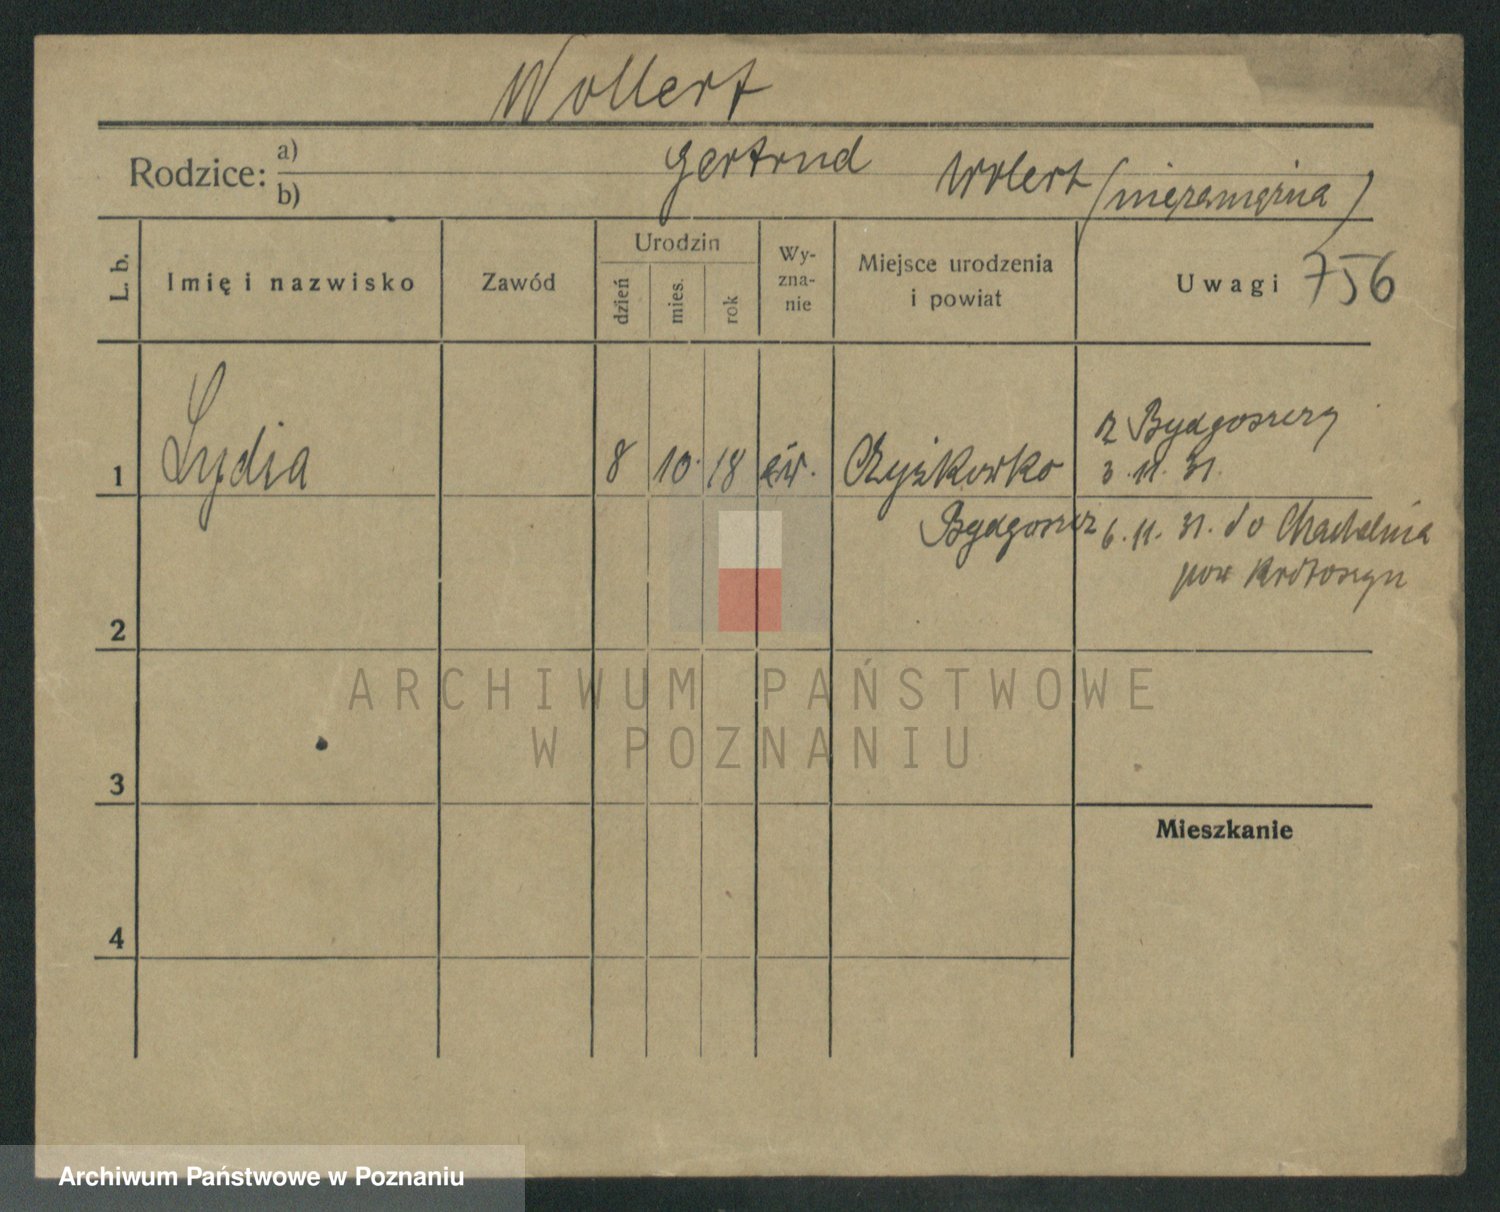 Wollert
Rodzice: a) Gertrud Wolert (niezamężna)
b)
L. b.
Imię i nazwisko
Zawód
Urodzin
dzień
mies.
rok
Wy-
zna-
nie
Miejsce urodzenia
i powiat
Uwagi 756
1 Lydia 8 10. 18 ew. Czyżkowko
z Bydgoszczy
3. 11. 31.
Bydgoszcz
6. 11. 31. do
pow Krotoszyn
2
ARCHIWUM PAŃSTWOWE
W POZNANIU
3
Mieszkanie
4
Archiwum Państwowe w Poznaniu